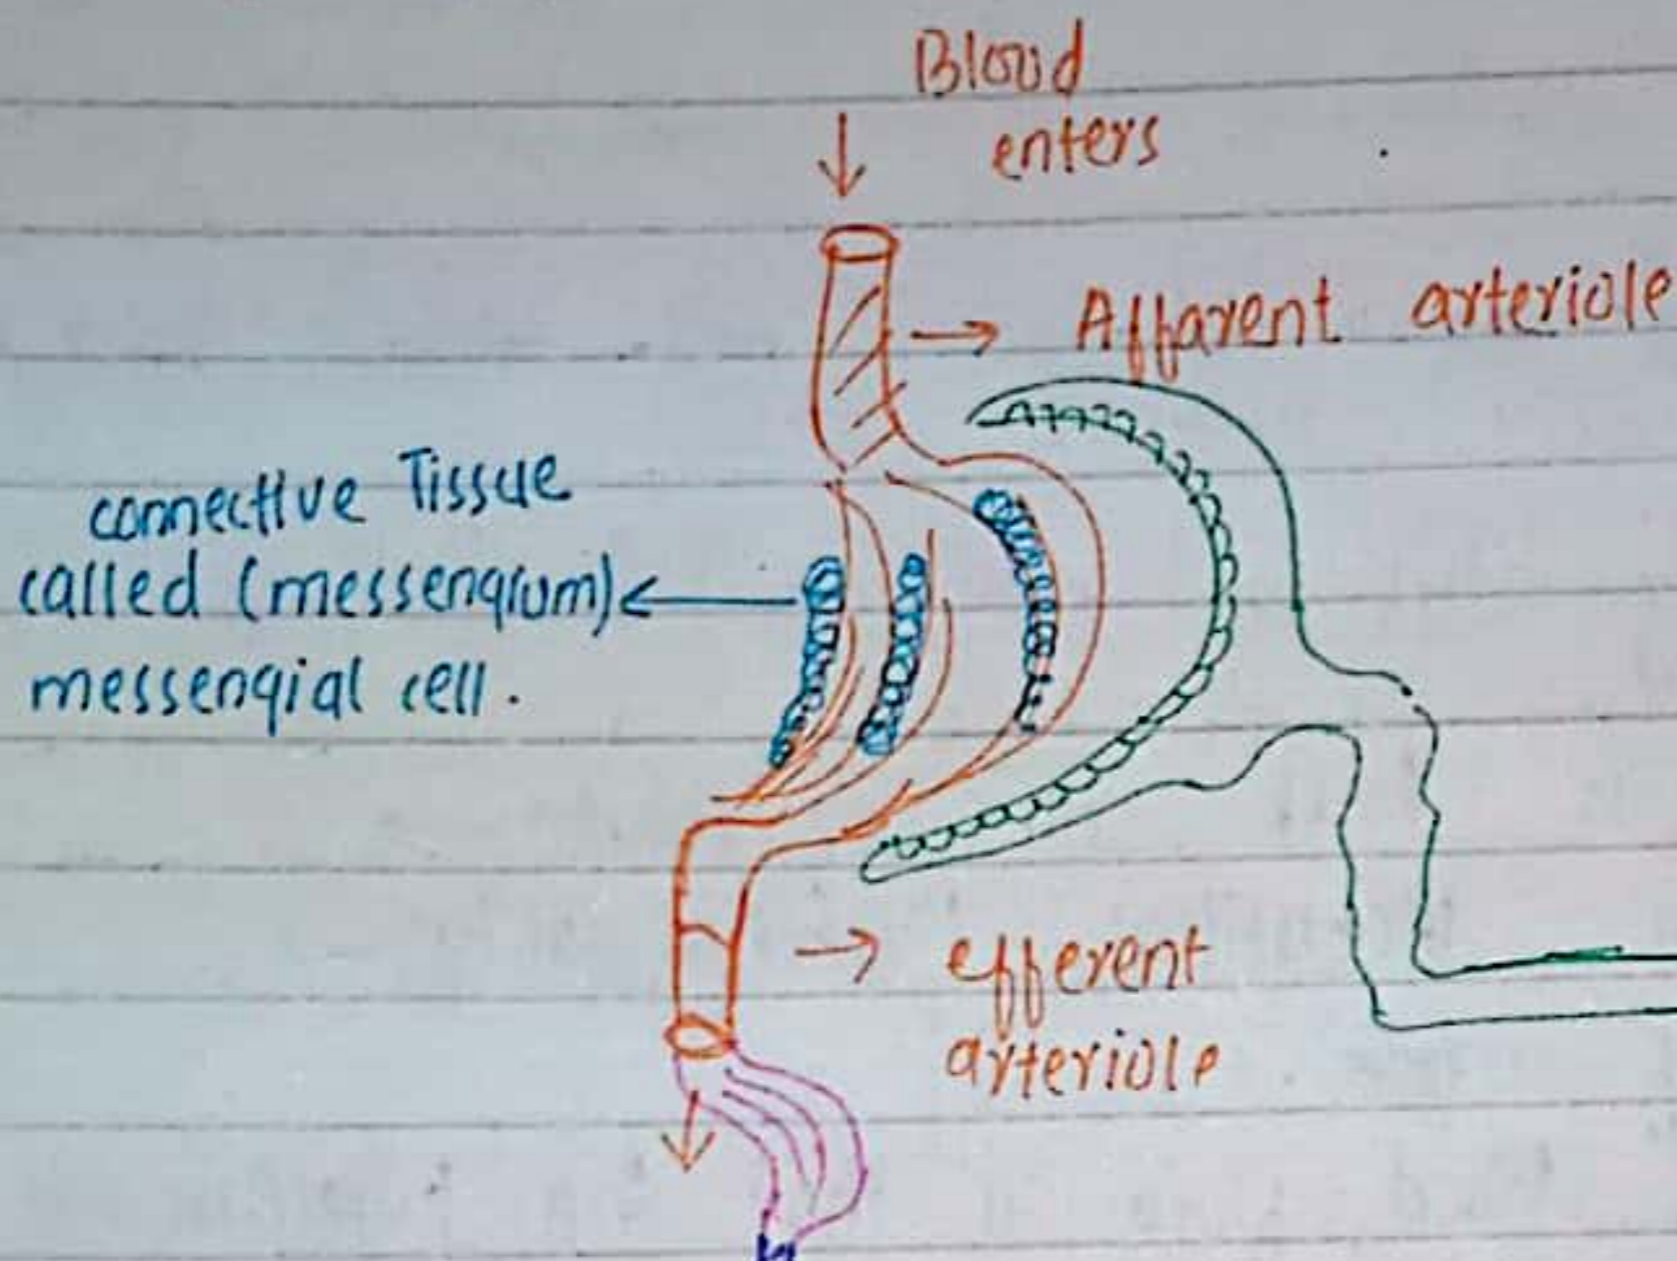 Blood
enters
Affarent arteriole
connective Tissue
called (messengium)
messengial cell.
efferent
arteriole